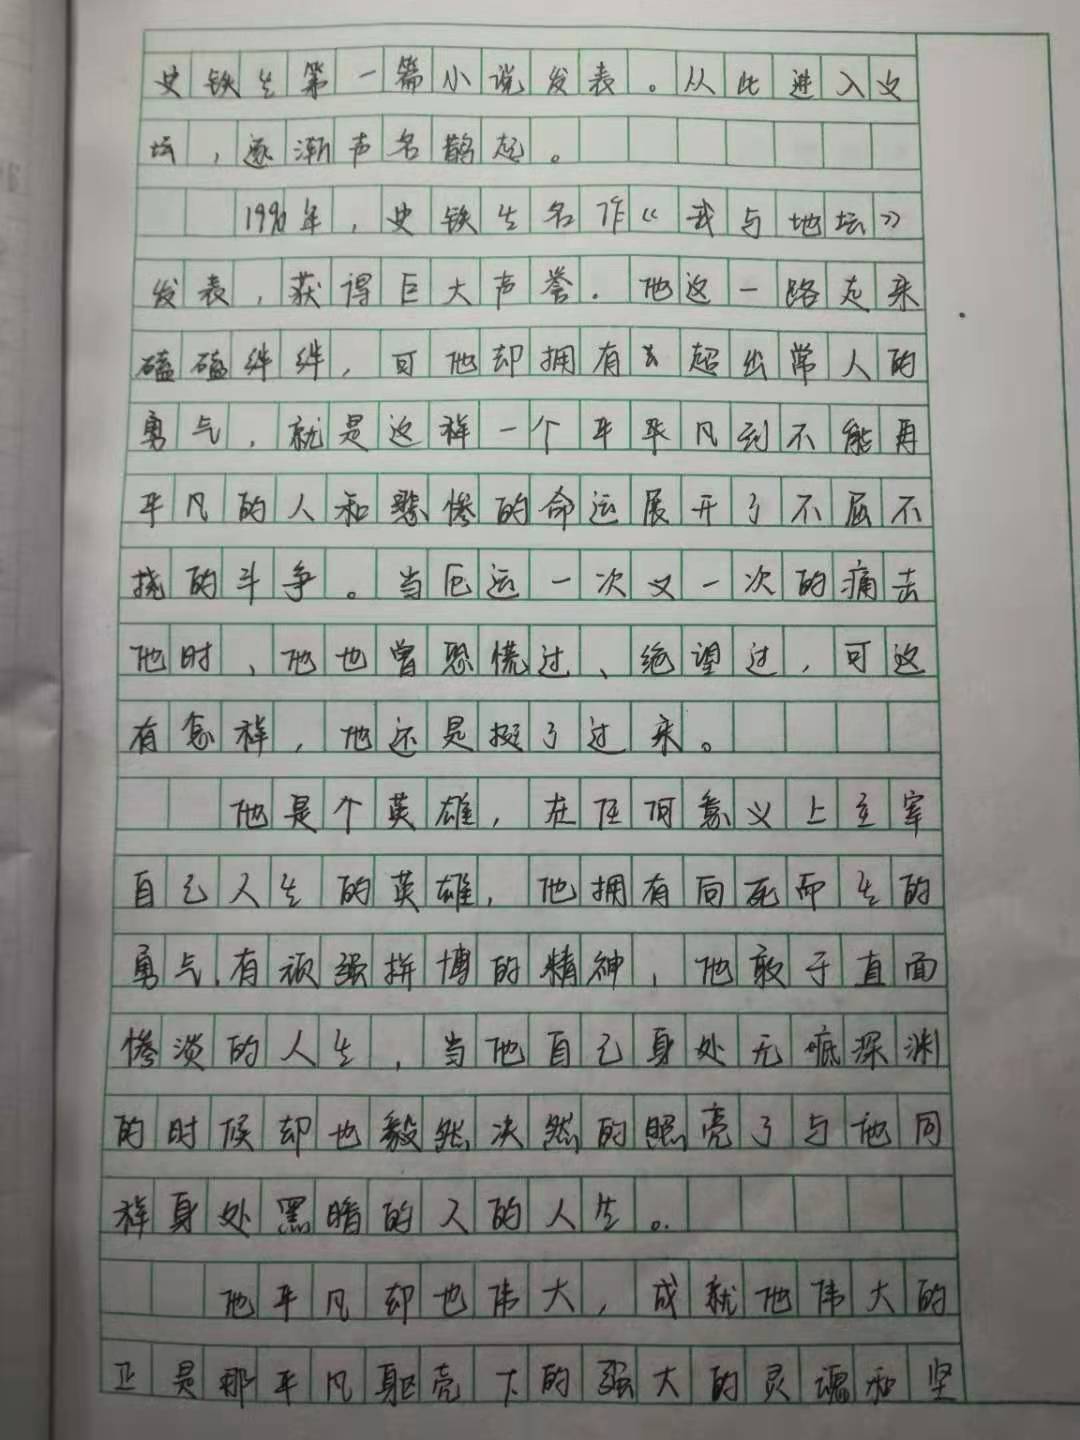 史铁生第一篇小说发表。从此进入文
坛,逐渐声名鹊起。
1991年,史铁生名作《我与地坛》
发表,获得巨大声誉.他这一路走来
磕磕绊绊,可他却拥有超出常人的
勇气,就是这样一个平平凡到不能再
平凡的人和悲惨的命运展开了不屈不
挠的斗争。当厄运一次又一次的痛击
他时、他也曾恐慌过、绝望过,可这
有怎样,他还是挺了过来。
他是个英雄,在任何意义上主宰
自己人生的英雄,他拥有向死而生的
勇气、有顽强拼博的精神,他敢于直面
惨淡的人生,当他自己身处无底深渊
的时候却也毅然决然的照亮了与他同
样身处黑暗的人的人生。
他平凡却也伟大,成就他伟大的
正是那平凡躯壳下的强大的灵魂和坚